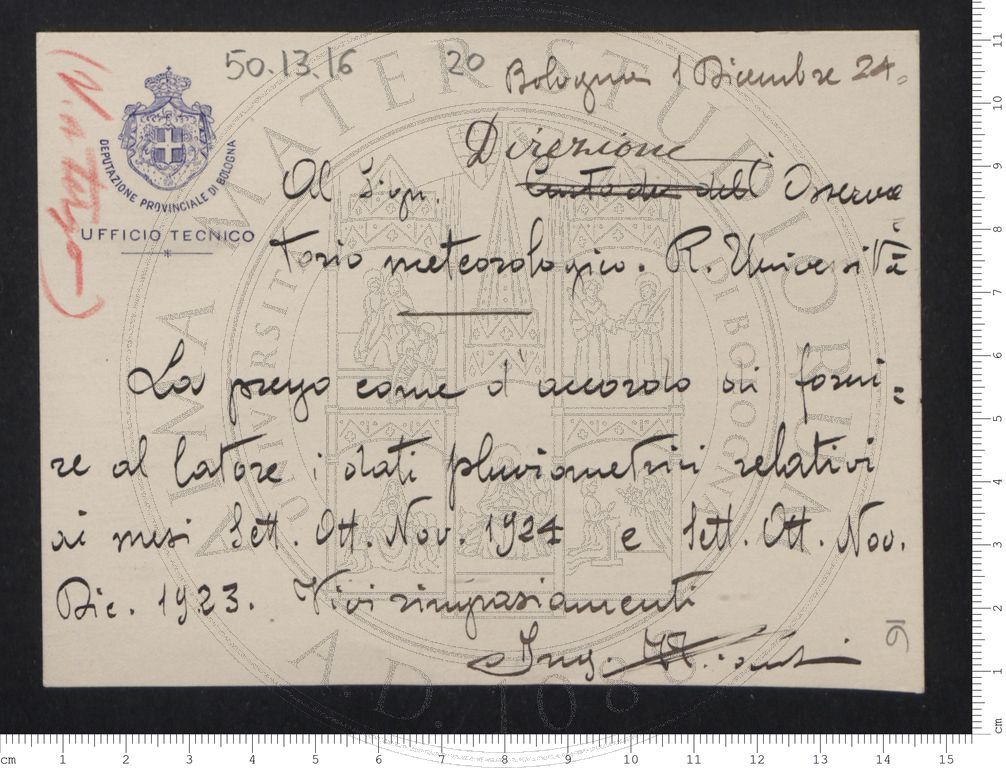 50.13.16 20
Bologna 1 Dicembre 24.
DEPUTAZIONE PROVINCIALE DI BOLOGNA
UFFICIO TECNICO
Direzione
Al Sign. dell' Osserva
torio meteorologico. R. Università
La prego come d'accordo di forni=
re al latore i dati pluviometrici relativi
ai mesi Sett. Ott. Nov. 1924 e Sett. Ott. Nov.
Dic. 1923. Vivi ringraziamenti
Ing.
16
ALMA MATER STUDIORUM
A.D. 1088
cm 1 2 3 4 5 6 7 8 9 10 11 12 13 14 15
cm 1 2 3 4 5 6 7 8 9 10 11